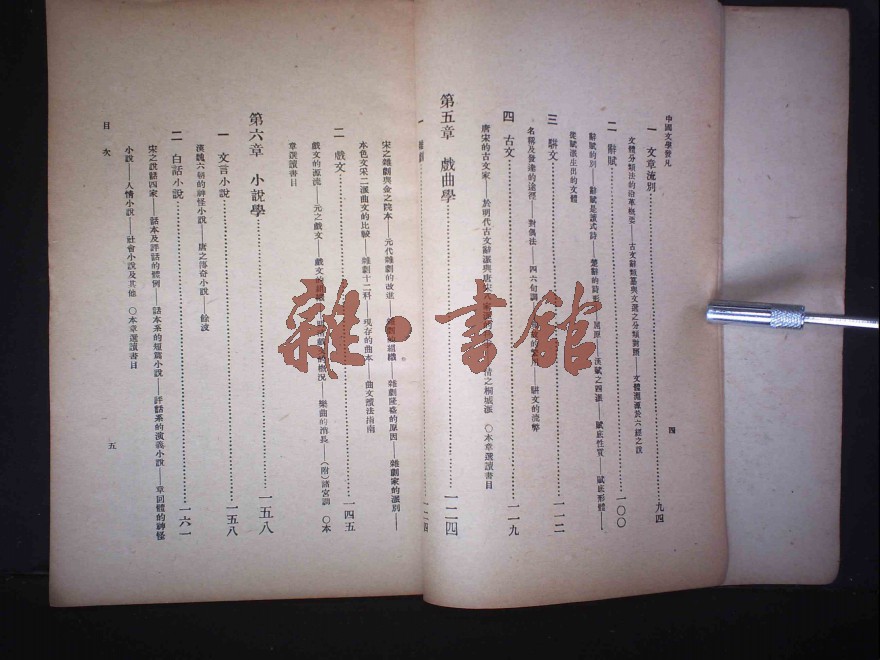 中國文學發凡
四
一 文章流別 九四
文體分類法的沿革概要——古文辭類纂與文選之分類對照——文體淵源於六經之說
二 辭賦 一〇〇
辭賦的別——辭賦是讀式詩——楚辭的詩形——屈原——漢賦之四派——賦底性質——賦底形體——
從賦派生出的文體
三 駢文 一一二
名稱及發達的途徑——對偶法——四六句調——駢文的流弊
四 古文 一一九
唐宋的古文家——於明代古文辭派與唐宋八家派 清之桐城派 〇本章選讀書目
第五章 戲曲學 一二四
一 雜劇 一二四
宋之雜劇與金之院本——元代雜劇的改進——組織——雜劇隆盛的原因——雜劇家的派別——
本色文采二派曲文的比較——雜劇十二科——現存的曲本——曲文讀法指南
二 戲文 一四五
戲文的源流——元之戲文——戲文 概況——樂曲的消長——(附)諸宮調 〇本
章選讀書目
第六章 小說學 一五八
一 文言小說 一五八
漢魏六朝的神怪小說——唐之傳奇小說——餘波
二 白話小說 一六一
宋之說話四家——話本及評話的體例——話本系的短篇小說——評話系的演義小說——章回體的神怪
小說——人情小說——社會小說及其他 〇本章選讀書目
目次
五
雜·書館